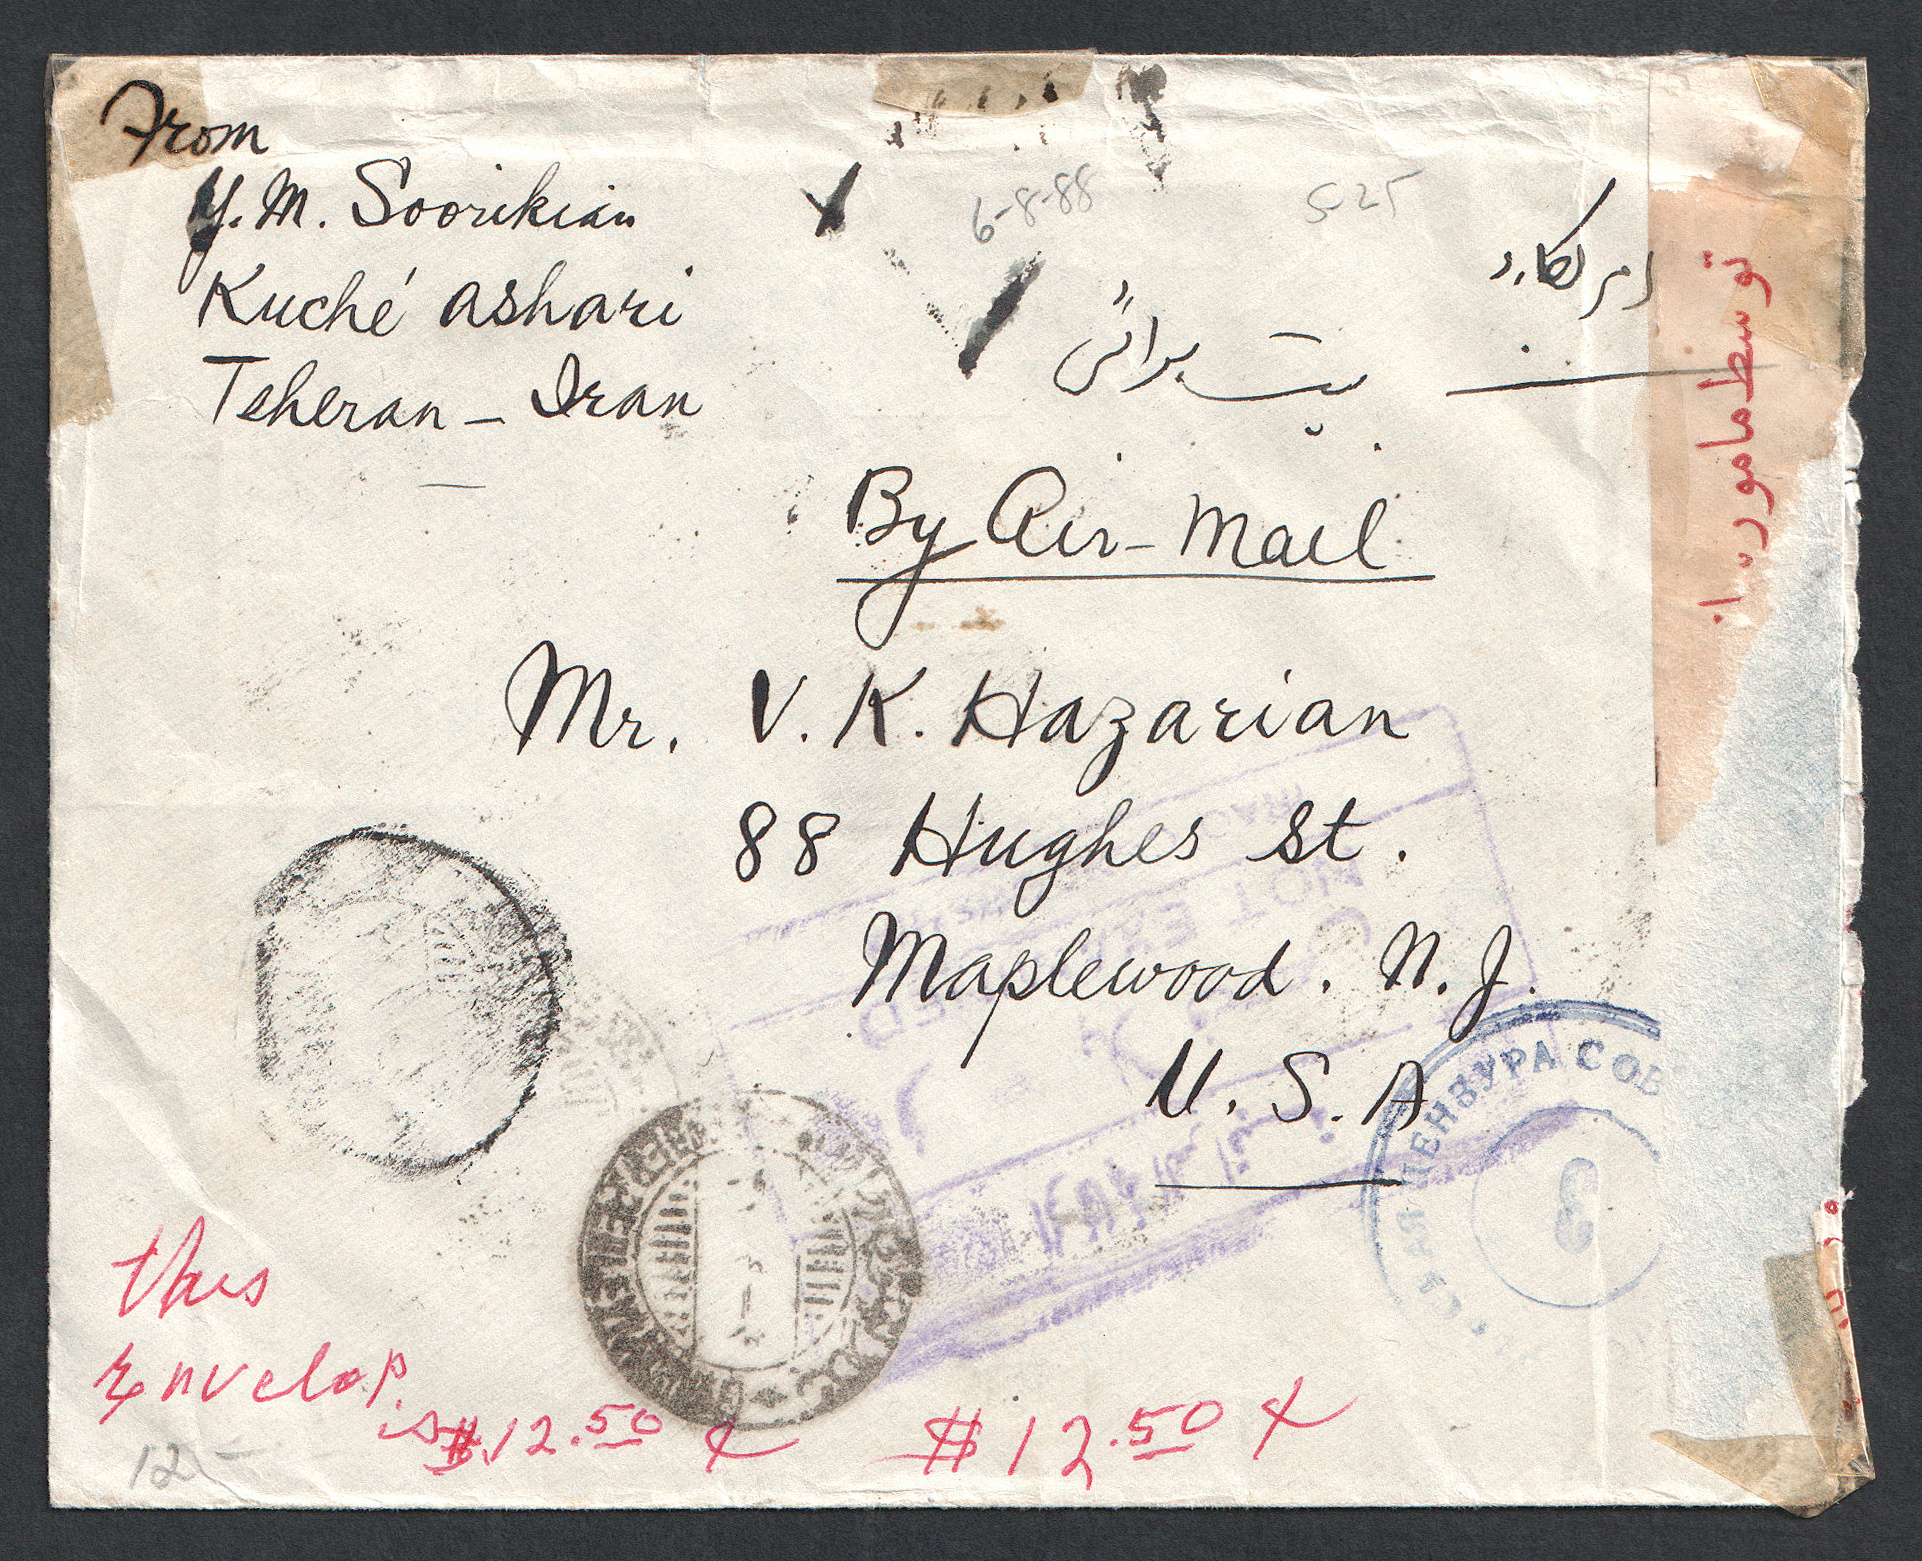 From
Y. M. Soorikian
Kuché ashari
Teheran - Iran
6-8-88
S-25
امریکا
پست هوائی
توسط مامور باز
By Air-Mail
Mr. V. K. Hazarian
88 Hughes St.
Maplewood. N. J.
U. S. A
NOT
ЦЕНЗУРА СОВ
3
this
Envelop
is $.12.50 ¢
$12.50 ¢
12-